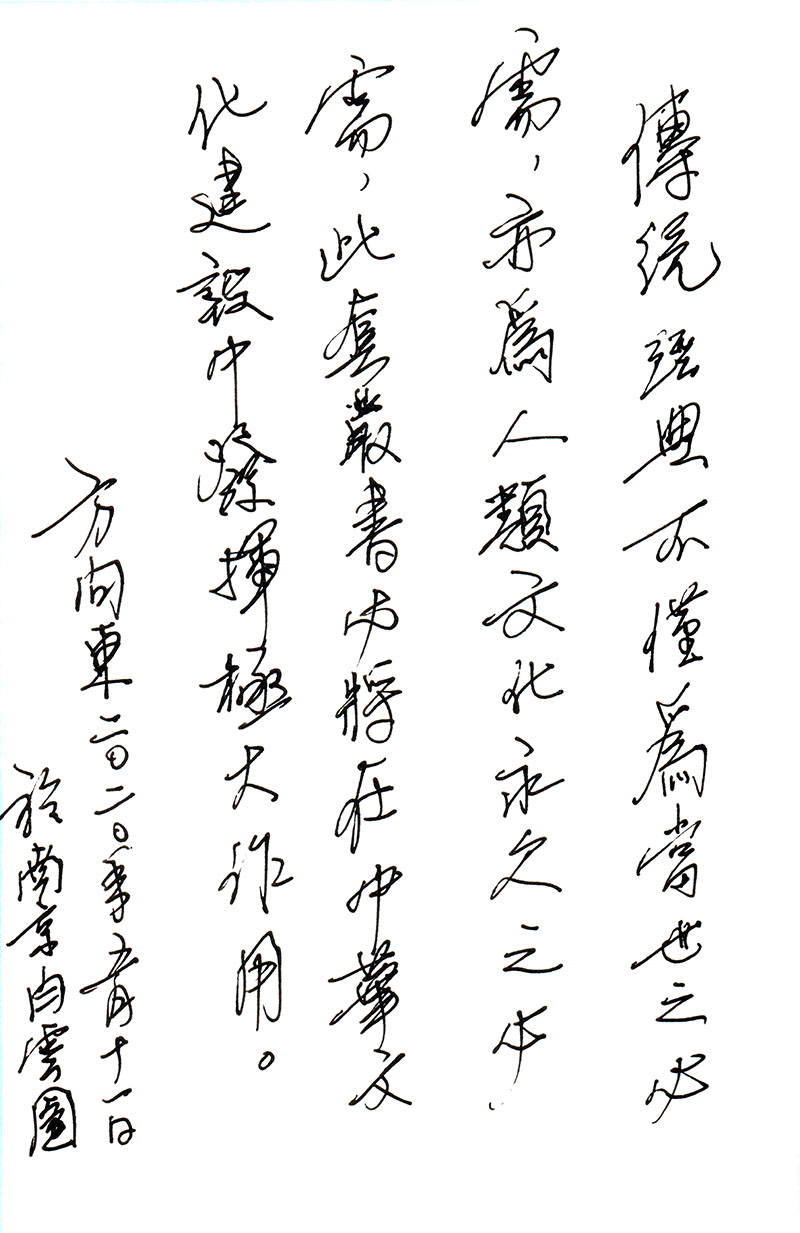 傳統經典不僅爲當世之必
需，亦爲人類文化永久之必
需，此套叢書必將在中華文
化建設中發揮極大作用。
方向東二〇二〇年五月十一日
於南京白雲園